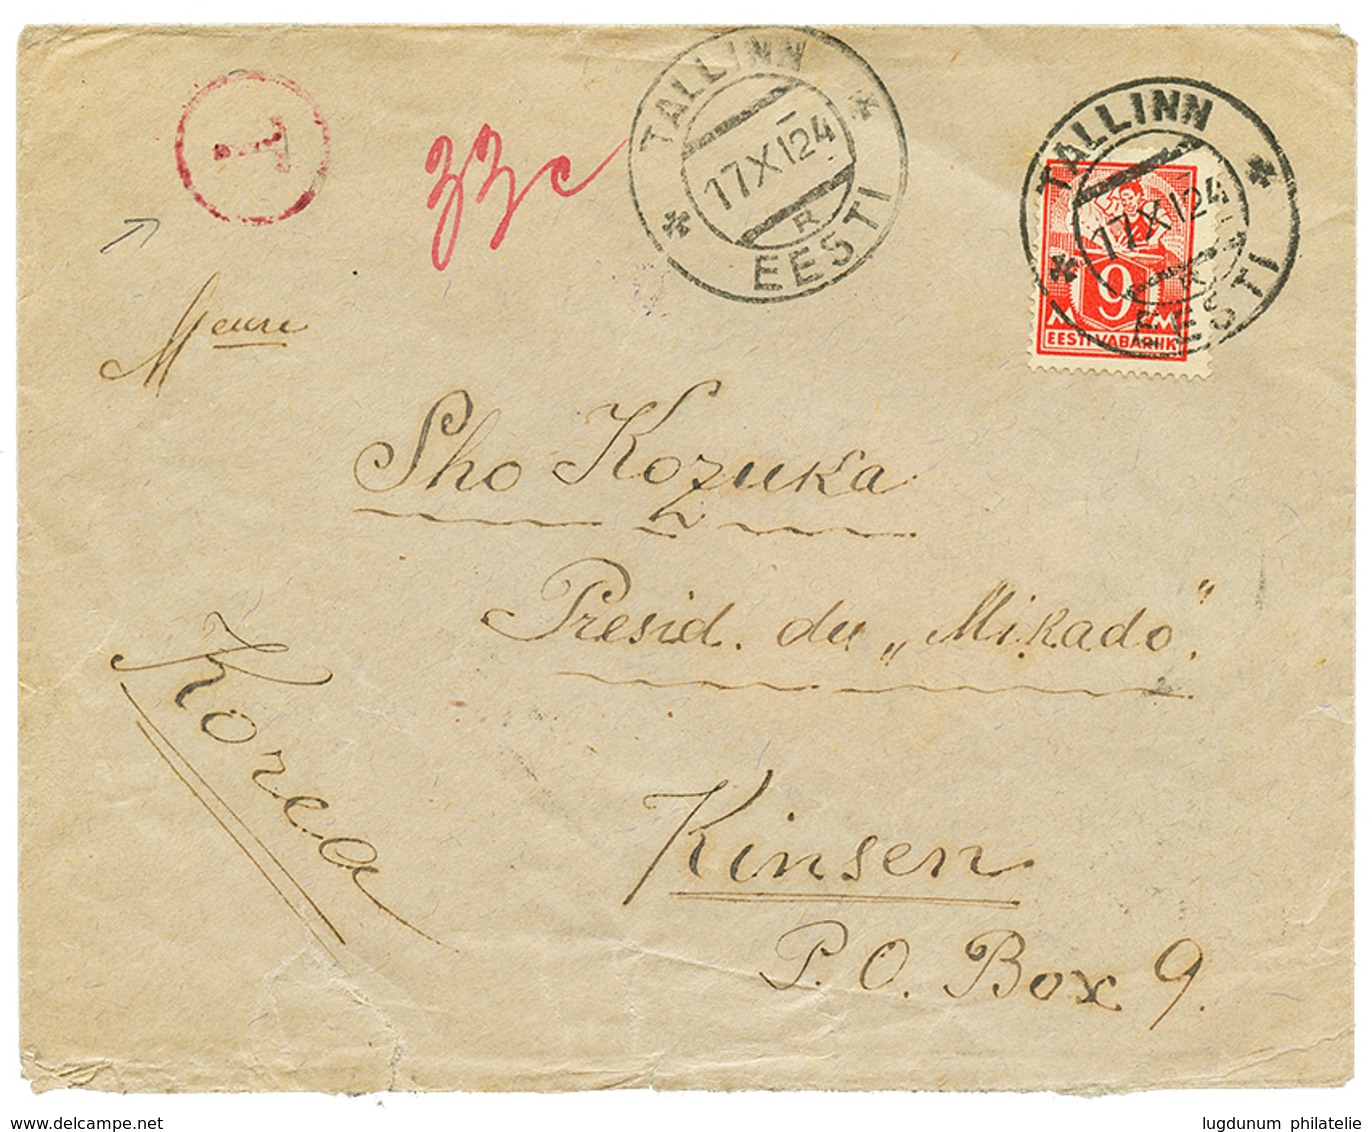 T
33c
TALLINN
17 XI 24
R
EESTI
TALLINN
17 XI 24
EESTI
9
M M
EESTI VABARIIK
Sho Kozuka
Presid. du „Mikado".
Korea
Kinsen
P. O. Box 9.
www.delcampe.net
lugdunum philatelie